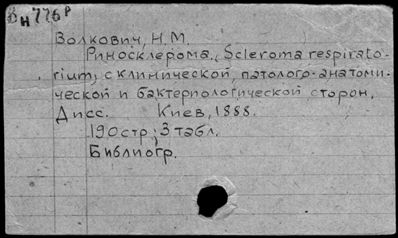 ВН 776 Р
Волкович, Н.М.
Риносклерома. (Scleroma respirato-
rium) с клинической, патолого-анатоми-
ческой и бактериологической сторон.
Дисс. Киев, 1888.
190 стр; 3 табл.
Библиогр.